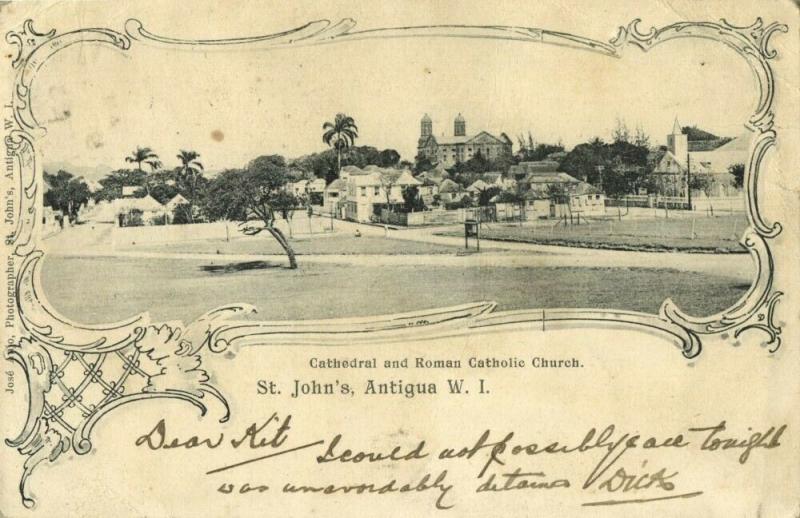 José Anjo, Photographer, St. John's, Antigua W. I.
Cathedral and Roman Catholic Church.
St. John's, Antigua W. I.
Dear Kit I could not possibly call tonight
was unavoidably detained Dick